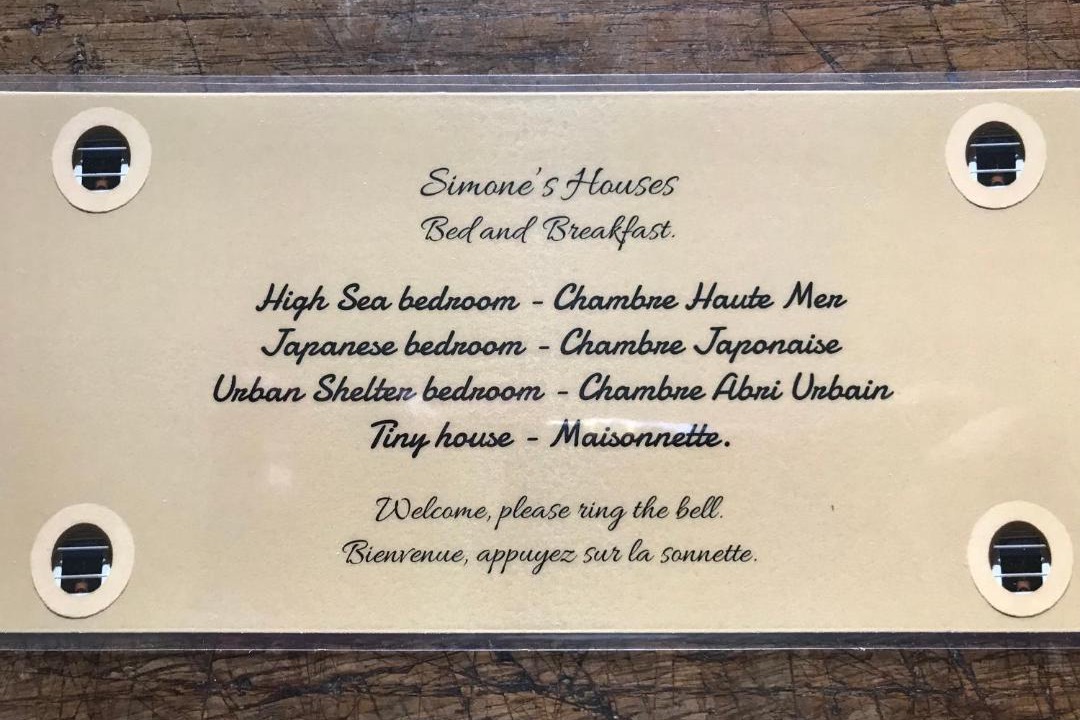 Simone's Houses
Bed and Breakfast.
High Sea bedroom - Chambre Haute Mer
Japanese bedroom - Chambre Japonaise
Urban Shelter bedroom - Chambre Abri Urbain
Tiny house - Maisonnette.
Welcome, please ring the bell.
Bienvenue, appuyez sur la sonnette.